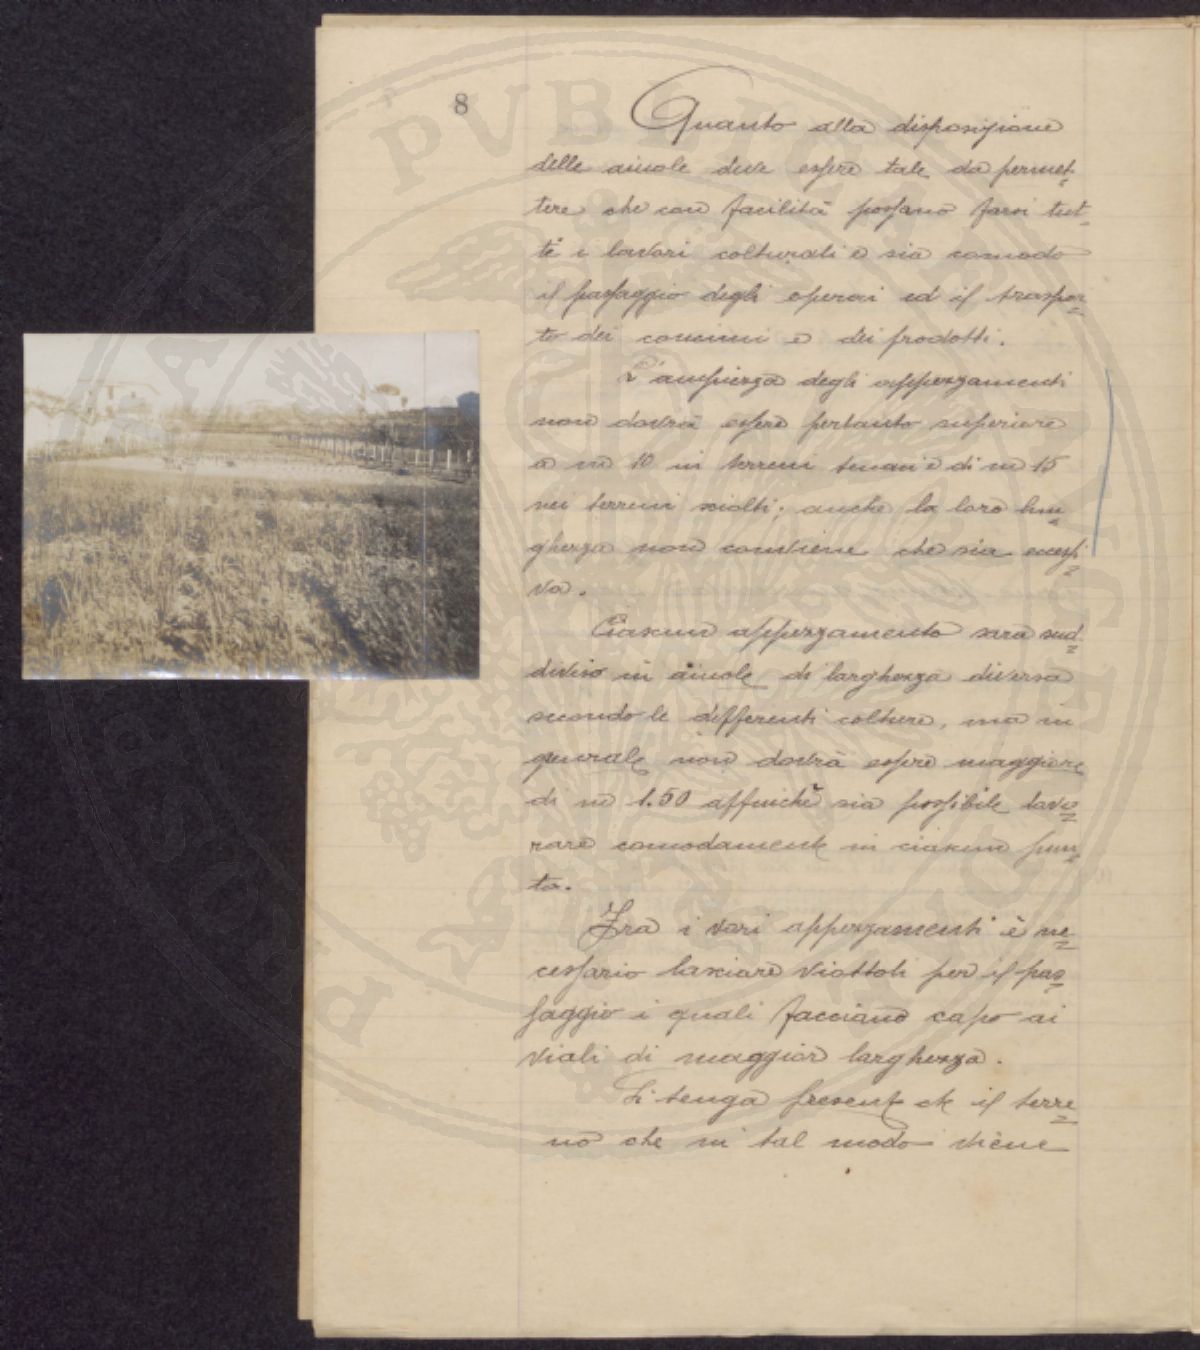 8
Quanto alla disposizione
delle aiuole deve essere tale da permet=
tere che con facilità possano farsi tut=
te i lavori colturali e sia comodo
il passaggio degli operai ed il traspor=
to dei concimi e dei prodotti.
L'ampiezza degli appezzamenti
non dovrà essere pertanto superiore
a m 10 in terreni tenaci e di m 15
nei terreni sciolti; anche la loro lun=
ghezza non conviene che sia eccessi=
va.
Ciascun appezzamento sarà sud=
diviso in aiuole di larghezza diversa
secondo le differenti colture, ma in
generale non dovrà essere maggiore
di m 1.50 affinchè sia possibile lavo=
rare comodamente in ciascun pun=
to.
Fra i vari appezzamenti è ne=
cessario lasciare viottoli per il pas=
saggio i quali facciano capo ai
viali di maggior larghezza.
Si tenga presente che il terre=
no che in tal modo viene